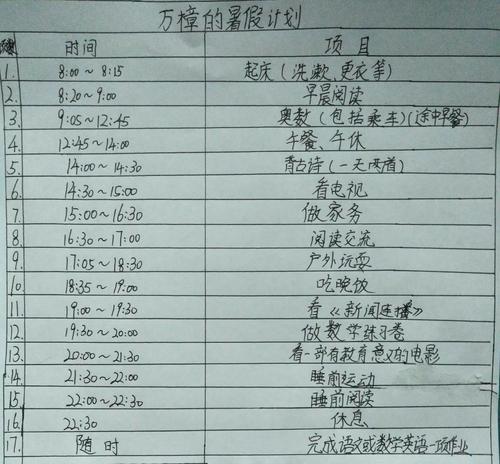 万樟的暑假计划
时间 项目
1. 8:00～8:15 起床（洗漱、更衣等）
2. 8:20～9:00 早晨阅读
3. 9:05～12:45 奥数（包括乘车）（途中早餐）
4. 12:45～14:00 午餐、午休
5. 14:00～14:30 背古诗（一天两首）
6. 14:30～15:00 看电视
7. 15:00～16:30 做家务
8. 16:30～17:00 阅读交流
9. 17:05～18:30 户外玩耍
10. 18:35～19:00 吃晚饭
11. 19:00～19:30 看《新闻连播》
12. 19:30～20:00 做数学练习卷
13. 20:00～21:30 看一部有教育意义的电影
14. 21:30～22:00 睡前运动
15. 22:00～22:30 睡前阅读
16. 22:30 休息
17. 随时 完成语文或数学英语一项作业